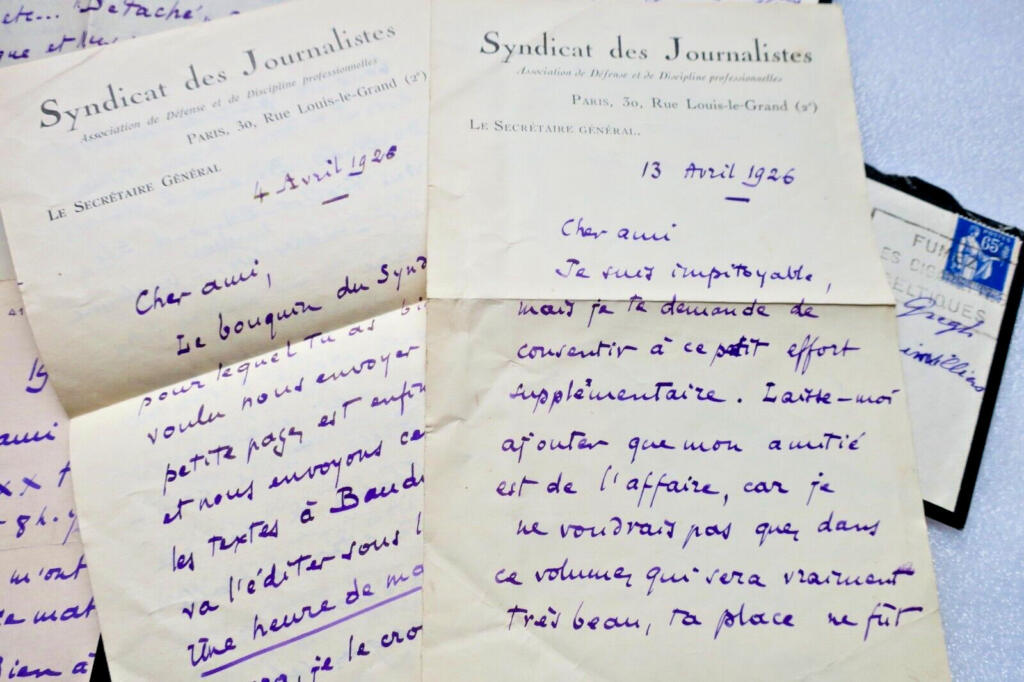 etc... Détaché,
que et
Syndicat des Journalistes
Association de Défense et de Discipline professionnelles
PARIS, 30, Rue Louis-le-Grand (2e)
LE SECRÉTAIRE GÉNÉRAL
4 Avril 1926
Cher ami,
Le bouquin du Synd
pour lequel tu as bi
voulu nous envoyer
petite page, est enfin
et nous envoyons ce
les textes à Baud
va l'éditer sous l
Une heure de ma
je le cro
Syndicat des Journalistes
Association de Défense et de Discipline professionnelles
PARIS, 30, Rue Louis-le-Grand (2e)
LE SECRÉTAIRE GÉNÉRAL.
13 Avril 1926
Cher ami
Je suis impitoyable,
mais je te demande de
consentir à ce petit effort
supplémentaire. Laisse-moi
ajouter que mon amitié
est de l'affaire, car je
ne voudrais pas que, dans
ce volume, qui sera vraiment
très beau, ta place ne fût
41
19
ami
xx
8h.
m'ont
ce mat
Bien à
65c
FUMEZ
ES CIGARETTES
CELTIQUES
Gregh